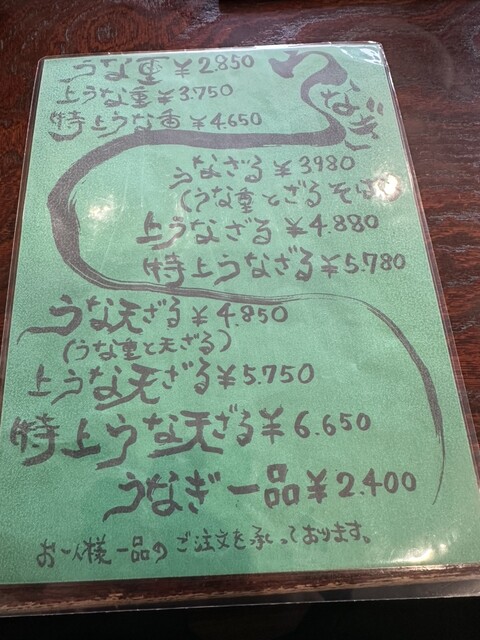 うなぎ
うな重 ¥2.850
上うな重 ¥3.750
特上うな重 ¥4.650
うなざる ¥3980
(うな重とざるそば)
上うなざる ¥4.880
特上うなざる ¥5.780
うな天ざる ¥4.850
(うな重と天ざる)
上うな天ざる ¥5.750
特上うな天ざる ¥6.650
うなぎ一品 ¥2.400
お一人様一品のご注文を承っております。